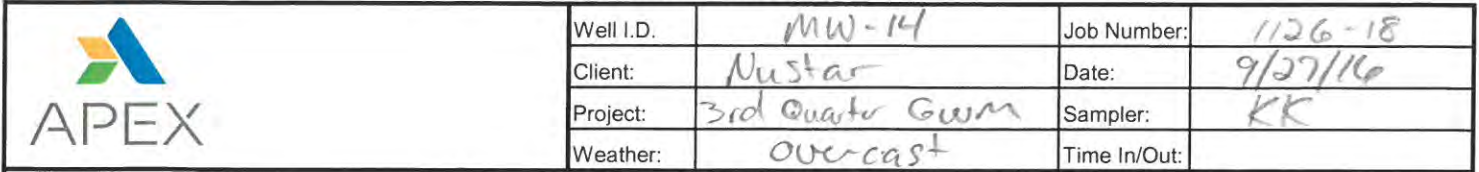 APEX
Well I.D. MW-14 Job Number: 1126-18
Client: Nustar Date: 9/27/16
Project: 3rd Quarter GWM Sampler: KK
Weather: Overcast Time In/Out: